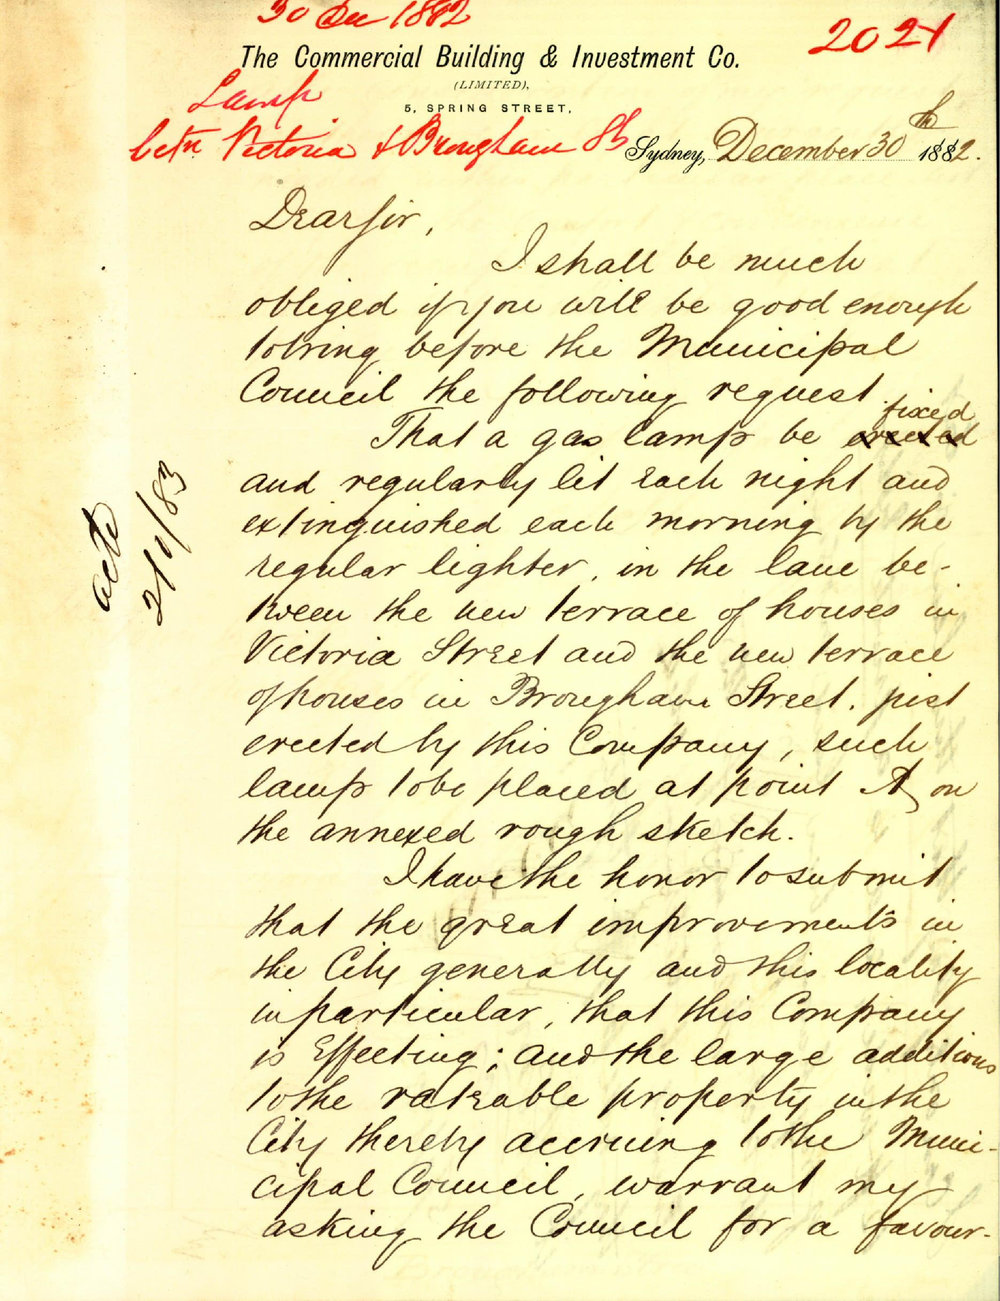 30 Dec 1882
2021
The Commercial Building & Investment Co.
(LIMITED),
5, SPRING STREET,
Lamp
betn Victoria & Brougham Sts
Sydney, December 30th 1882.
Dear Sir,
I shall be much
obliged if you will be good enough
to bring before the Municipal
Council the following request.
fixed
That a gas lamp be erected
and regularly lit each night and
extinguished each morning by the
regular lighter, in the lane be-
tween the new terrace of houses in
Victoria Street and the new terrace
of houses in Brougham Street, just
erected by this Company, such
lamp to be placed at point A on
the annexed rough sketch.
I have the honor to submit
that the great improvements in
the City generally and this locality
in particular, that this Company
is effecting; and the large additions
to the rateable property in the
City thereby accruing to the Muni-
cipal Council, warrant my
asking the Council for a favour-